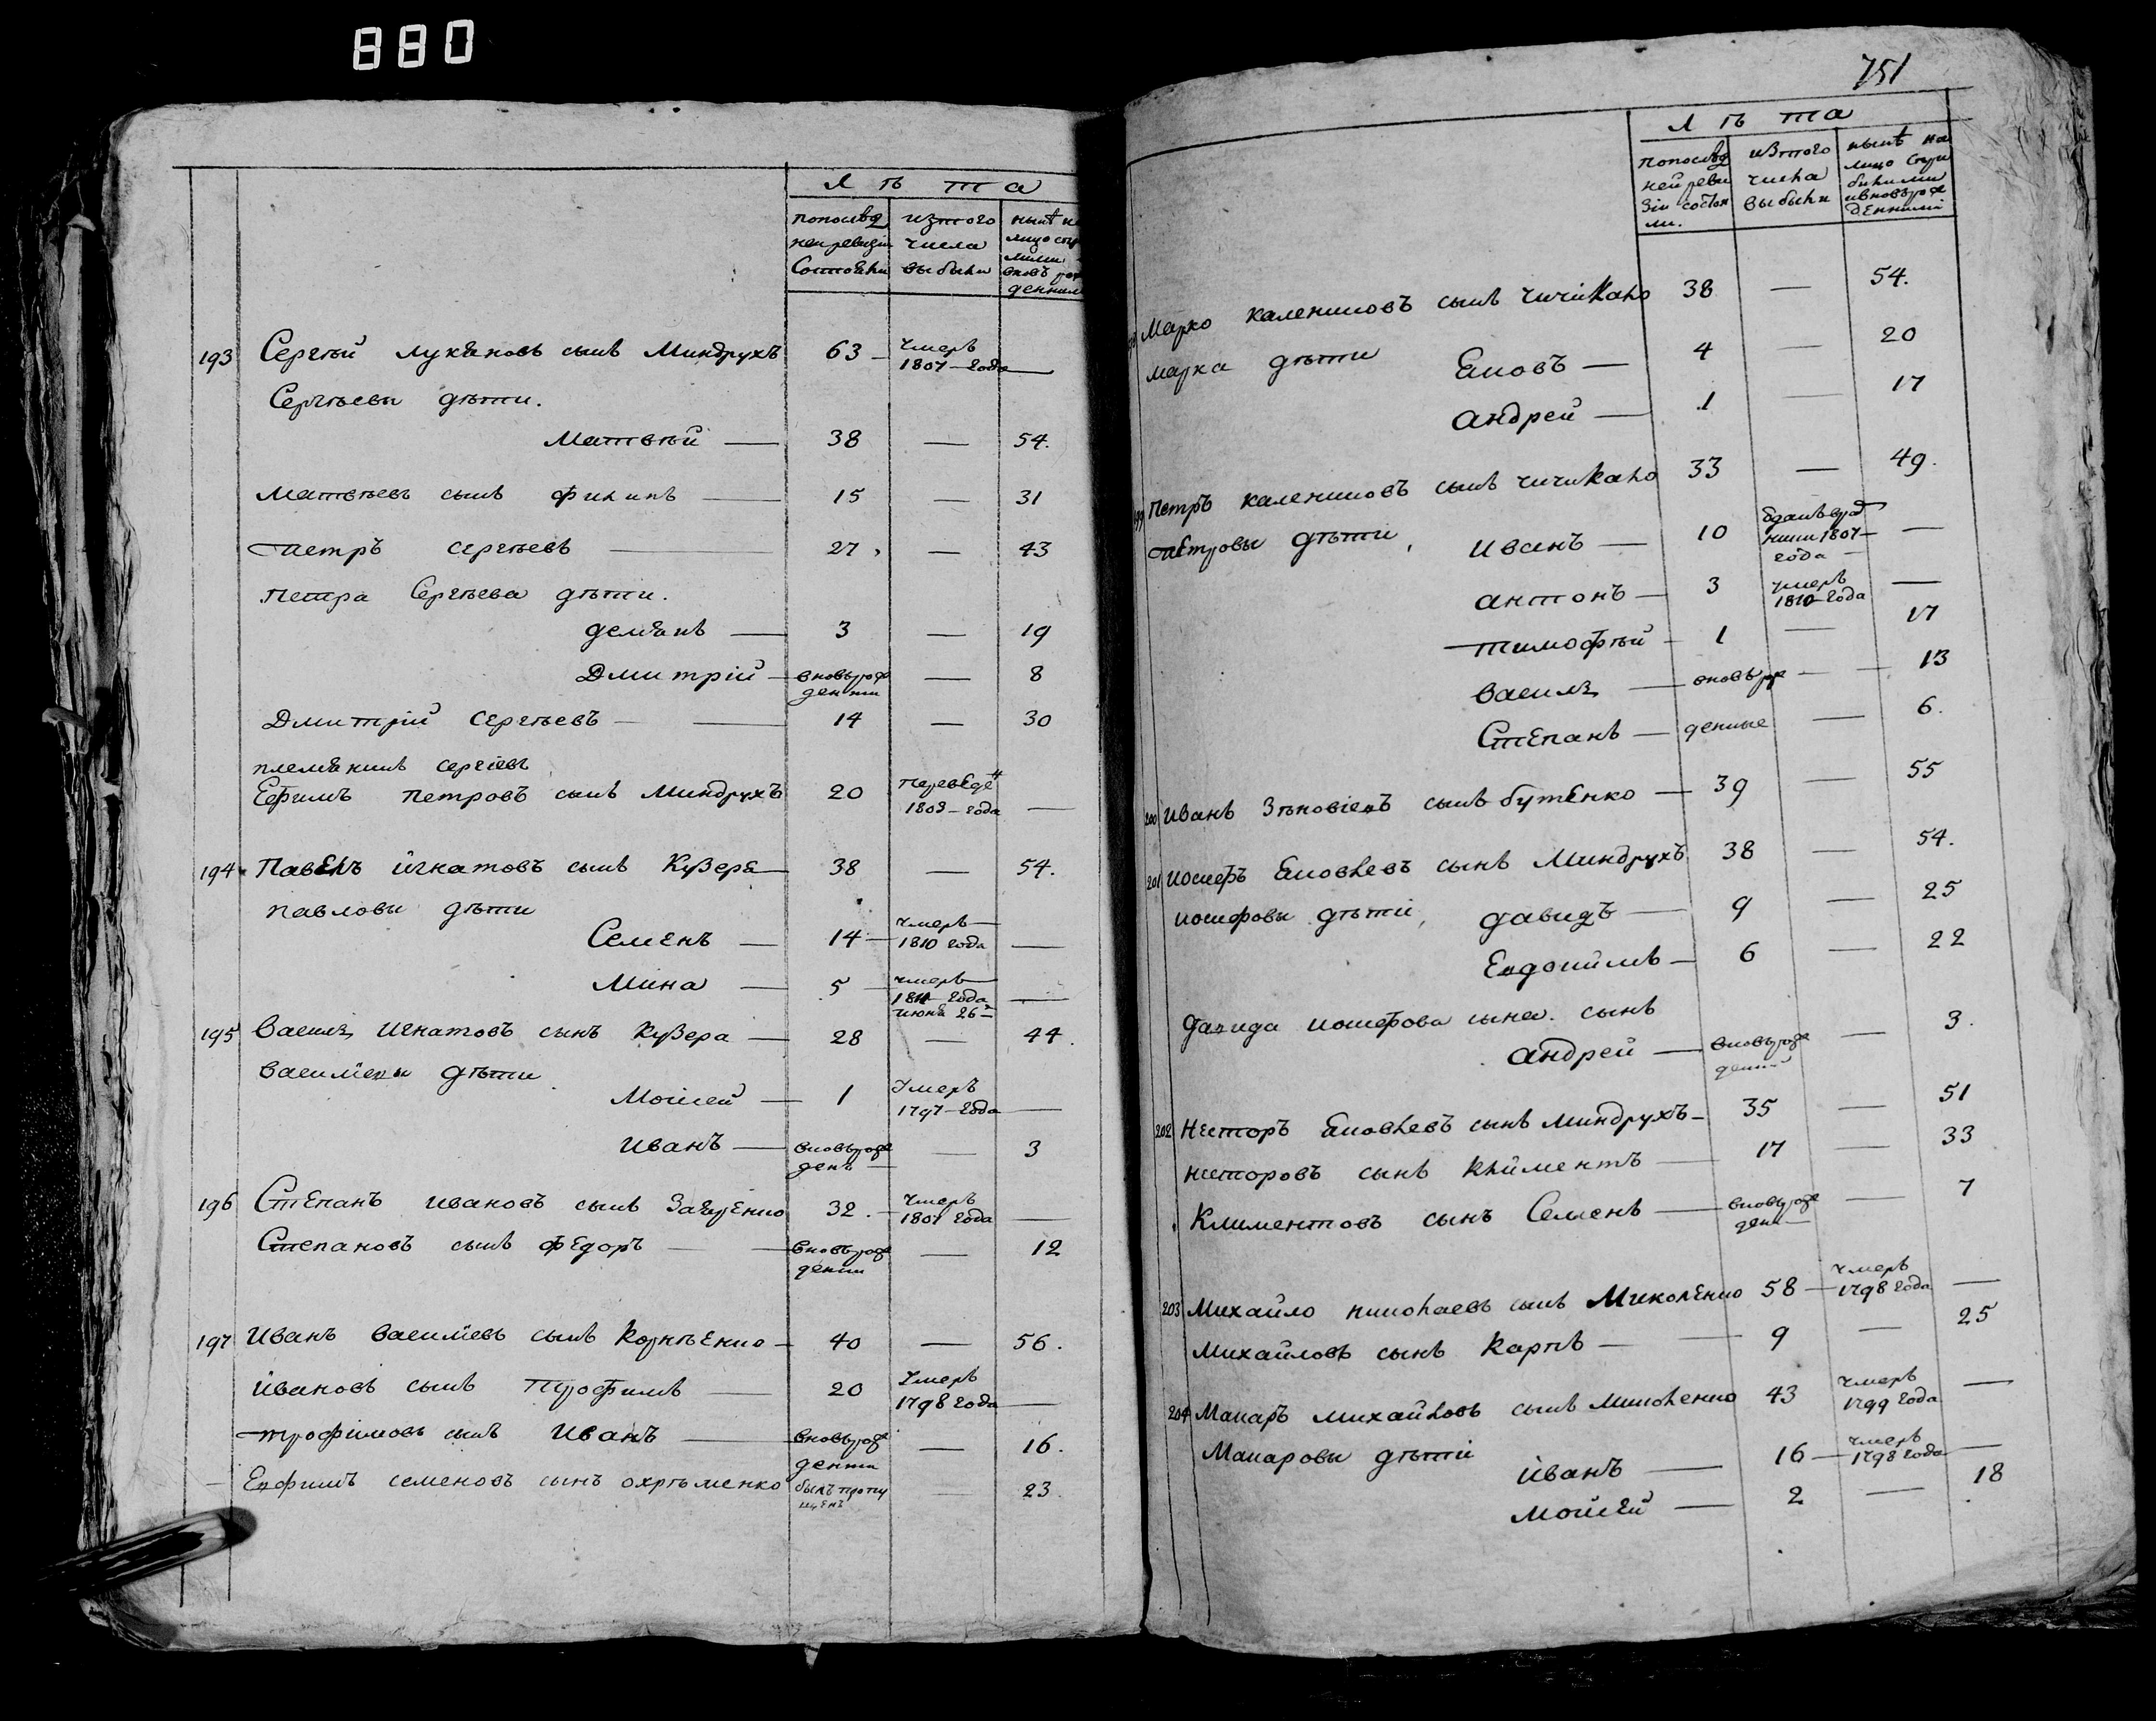 880
Лѣта
попослѣд изтого нынѣ н
ней ревизіи числа лицо съ
Состояли выбыли вновь ро
193 Сергѣй Лукяновъ сынъ Миндрухъ 63 — умеръ 1807 года —
Сергѣевы дѣти.
Матвѣй — 38 — 54.
Матвѣевъ сынъ Филипъ — 15 — 31
Петръ Сергѣевъ — 27 — 43
Петра Сергѣева дѣти.
Демянъ — 3 — 19
Дмитрій — вновърож денны — 8
Дмитрій Сергѣевъ — 14 — 30
племяникъ Сергіевъ
Ефимъ Петровъ сынъ Миндрухъ 20 переведен 1803 года —
194 Павелъ Игнатовъ сынъ Кузера — 38 — 54.
Павловы дѣти
Семенъ — 14 — умеръ 1810 года —
Мина — 5 — умеръ 1811 года июня 26 —
195 Василь Игнатовъ сынъ Кузера — 28 — 44.
Василіевы дѣти
Моисей — 1 умеръ 1797 года —
Иванъ — вновьрож денъ — 3
196 Степанъ Ивановъ сынъ 32. — умеръ 1807 года —
Степановъ сынъ Федоръ — вновьрож денны — 12
197 Иванъ Василіевъ сынъ Корнѣенко — 40 — 56.
Ивановъ сынъ Трофимъ — 20 умеръ 1798 года —
Трофимовъ сынъ Иванъ — вновьрож денны — 16.
— Евфимъ Семеновъ сынъ Охрѣменко былъ пропу щенъ — 23.
751
Лѣта
попослѣд изтого нынѣ на
ней реви числа лицо съпри
зіи состоя выбыли былыми
ли. ивновърож деннимі
Марко Калениковъ сынъ Чичикало 38 — 54.
Марка дѣти Яковъ — 4 — 20
Андрей — 1 — 17
199 Петръ Калениковъ сынъ Чичикало 33 — 49.
Петровы дѣти, Иванъ — 10 зданъ 1807 года —
Антонъ — 3 умеръ 1810 года —
Тимофѣй — 1 — 17
Василь — вновърож — 13
Степанъ — денные — 6.
200 Иванъ Зѣновіевъ сынъ Бутенко — 39 — 55
201 Иосифъ Яковлевъ сынъ Миндрухъ 38 — 54.
Иосифовы дѣти, Давидъ — 9 — 25
Евдокимъ — 6 — 22
Давида Иосифова сына. сынъ
Андрей — вновьрож денны — 3.
202 Несторъ Яковлевъ сынъ Миндрухъ — 35 — 51
Несторовъ сынъ Климентъ — 17 — 33
Климентовъ сынъ Семенъ — вновьрож ден — 7
203 Михайло Николаевъ сынъ Миколенко 58 — умеръ 1798 года —
Михайловъ сынъ Карпъ — 9 — 25
204 Макаръ Михайловъ сынъ Миколенко 43 умеръ 1799 года —
Макаровы дѣти
Иванъ — 16 — умеръ 1798 года —
Моисей — 2 — 18